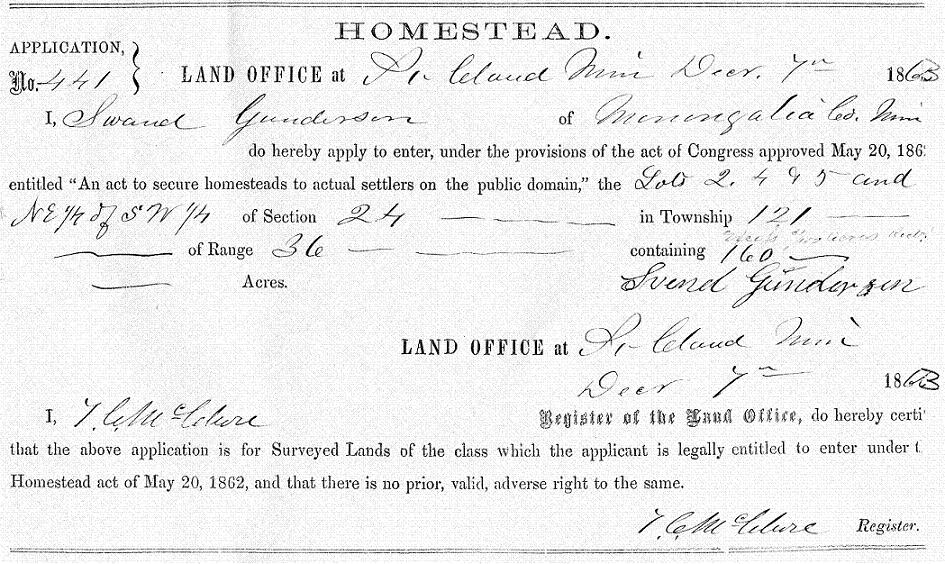 HOMESTEAD.
APPLICATION,
No. 441
LAND OFFICE at St Cloud Min Decr. 7th 1863
I, Swand Gunderson of Monongalia Co. Min
do hereby apply to enter, under the provisions of the act of Congress approved May 20, 186
entitled “An act to secure homesteads to actual settlers on the public domain,” the Lots 2. 4 & 5 and
NE 1/4 of SW 1/4 of Section 24 in Township 121
of Range 36 containing 160
Acres. Svend Gunderson
LAND OFFICE at St Cloud Min
Decr 7th 1863
I, T. C. McClure Register of the Land Office, do hereby certi
that the above application is for Surveyed Lands of the class which the applicant is legally entitled to enter under t
Homestead act of May 20, 1862, and that there is no prior, valid, adverse right to the same.
T. C. McClure Register.